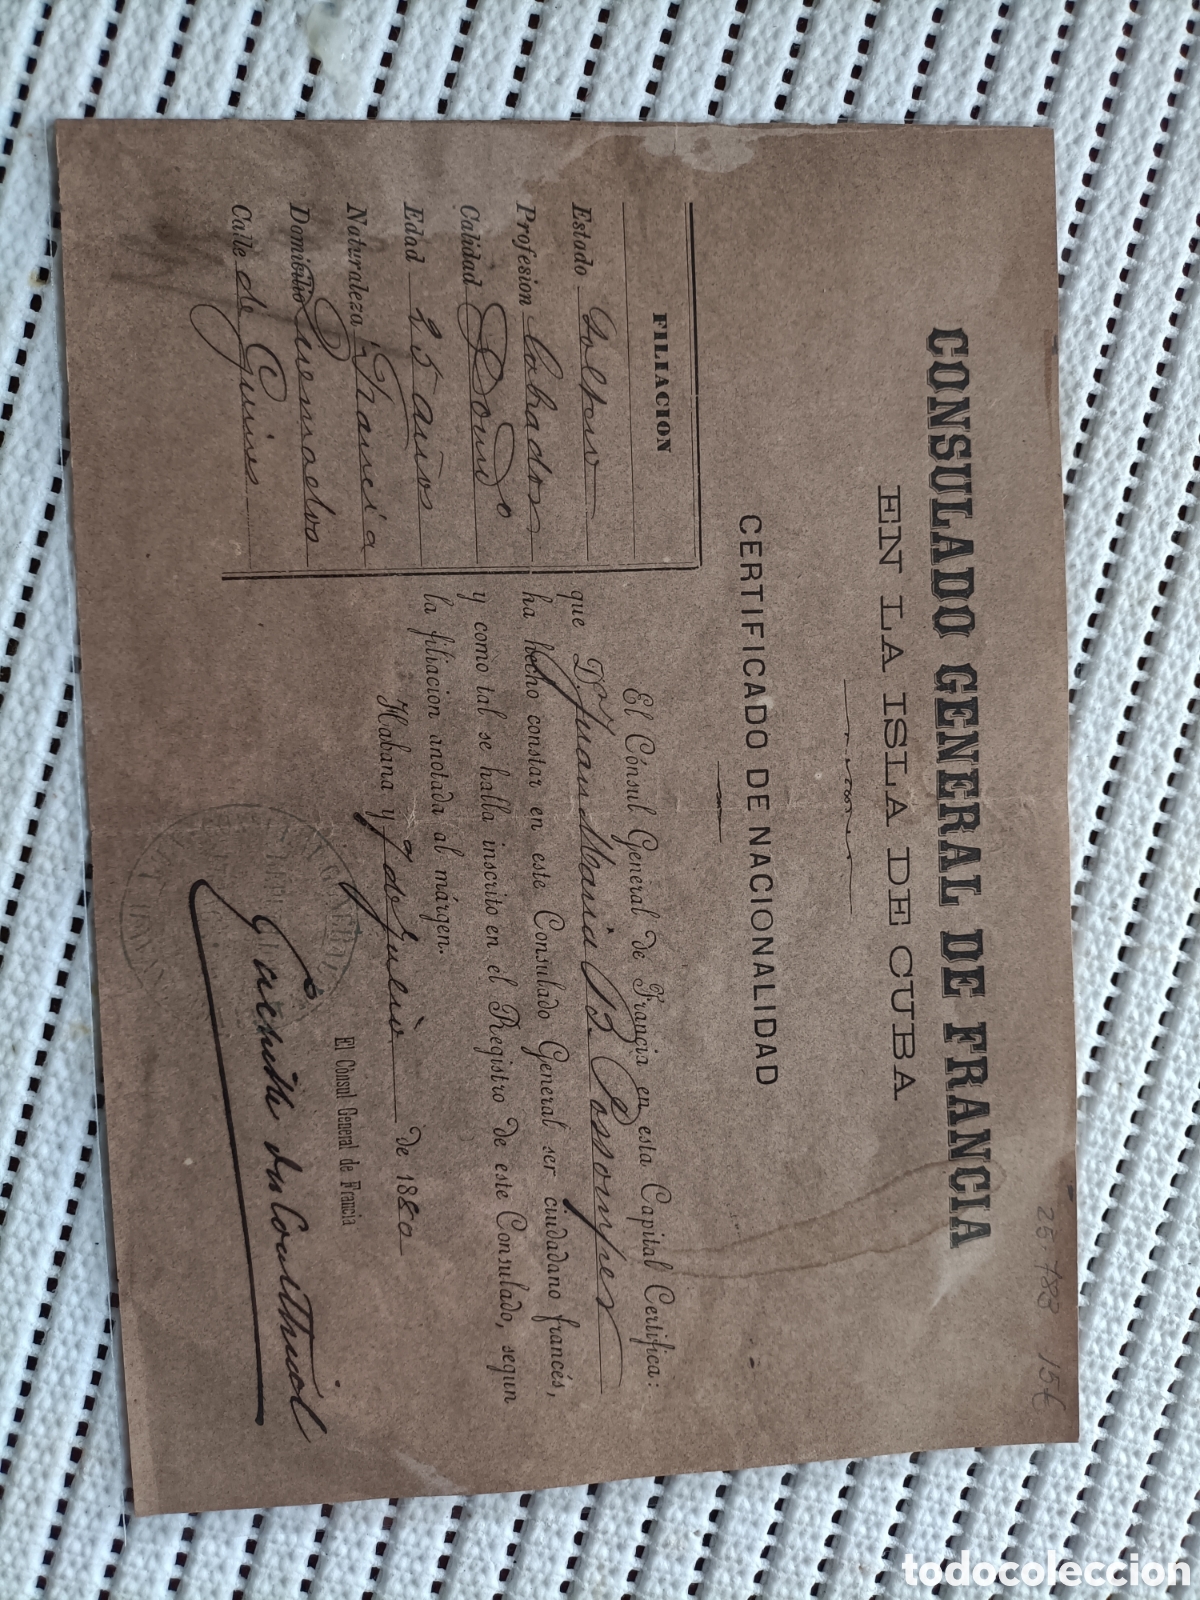 25 788 15€
CONSULADO GENERAL DE FRANCIA
EN LA ISLA DE CUBA
CERTIFICADO DE NACIONALIDAD
FILIACION
Estado Soltero
Profesion
Calidad
Edad 25 años
Naturaleza Francia
Domibilio Quemados
Calle de Guines
El Cónsul General de Francia en esta Capital Certifica:
que Dn Juan Maria B.
ha hecho constar en este Consulado General ser ciudadano francés,
y como tal se halla inscrito en el Registro de este Consulado, segun
la filiacion anotada al márgen.
Habana y 7 de Julio de 1880
El Cónsul General de Francia
todocoleccion